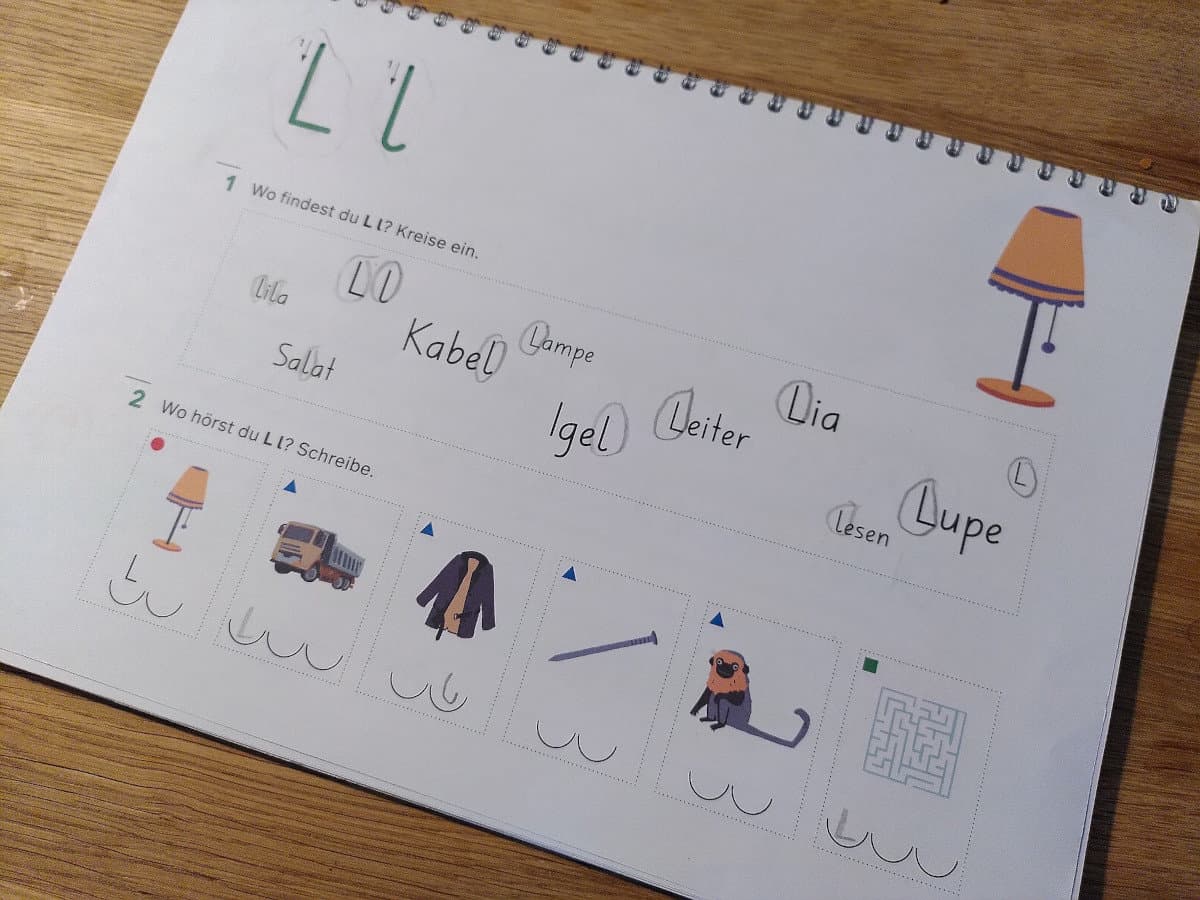 L l
1 Wo findest du L l? Kreise ein.
Lila L l
Kabel Lampe
Salat
Igel Leiter Lia
L
lesen Lupe
2 Wo hörst du L l? Schreibe.
L
L
l
L